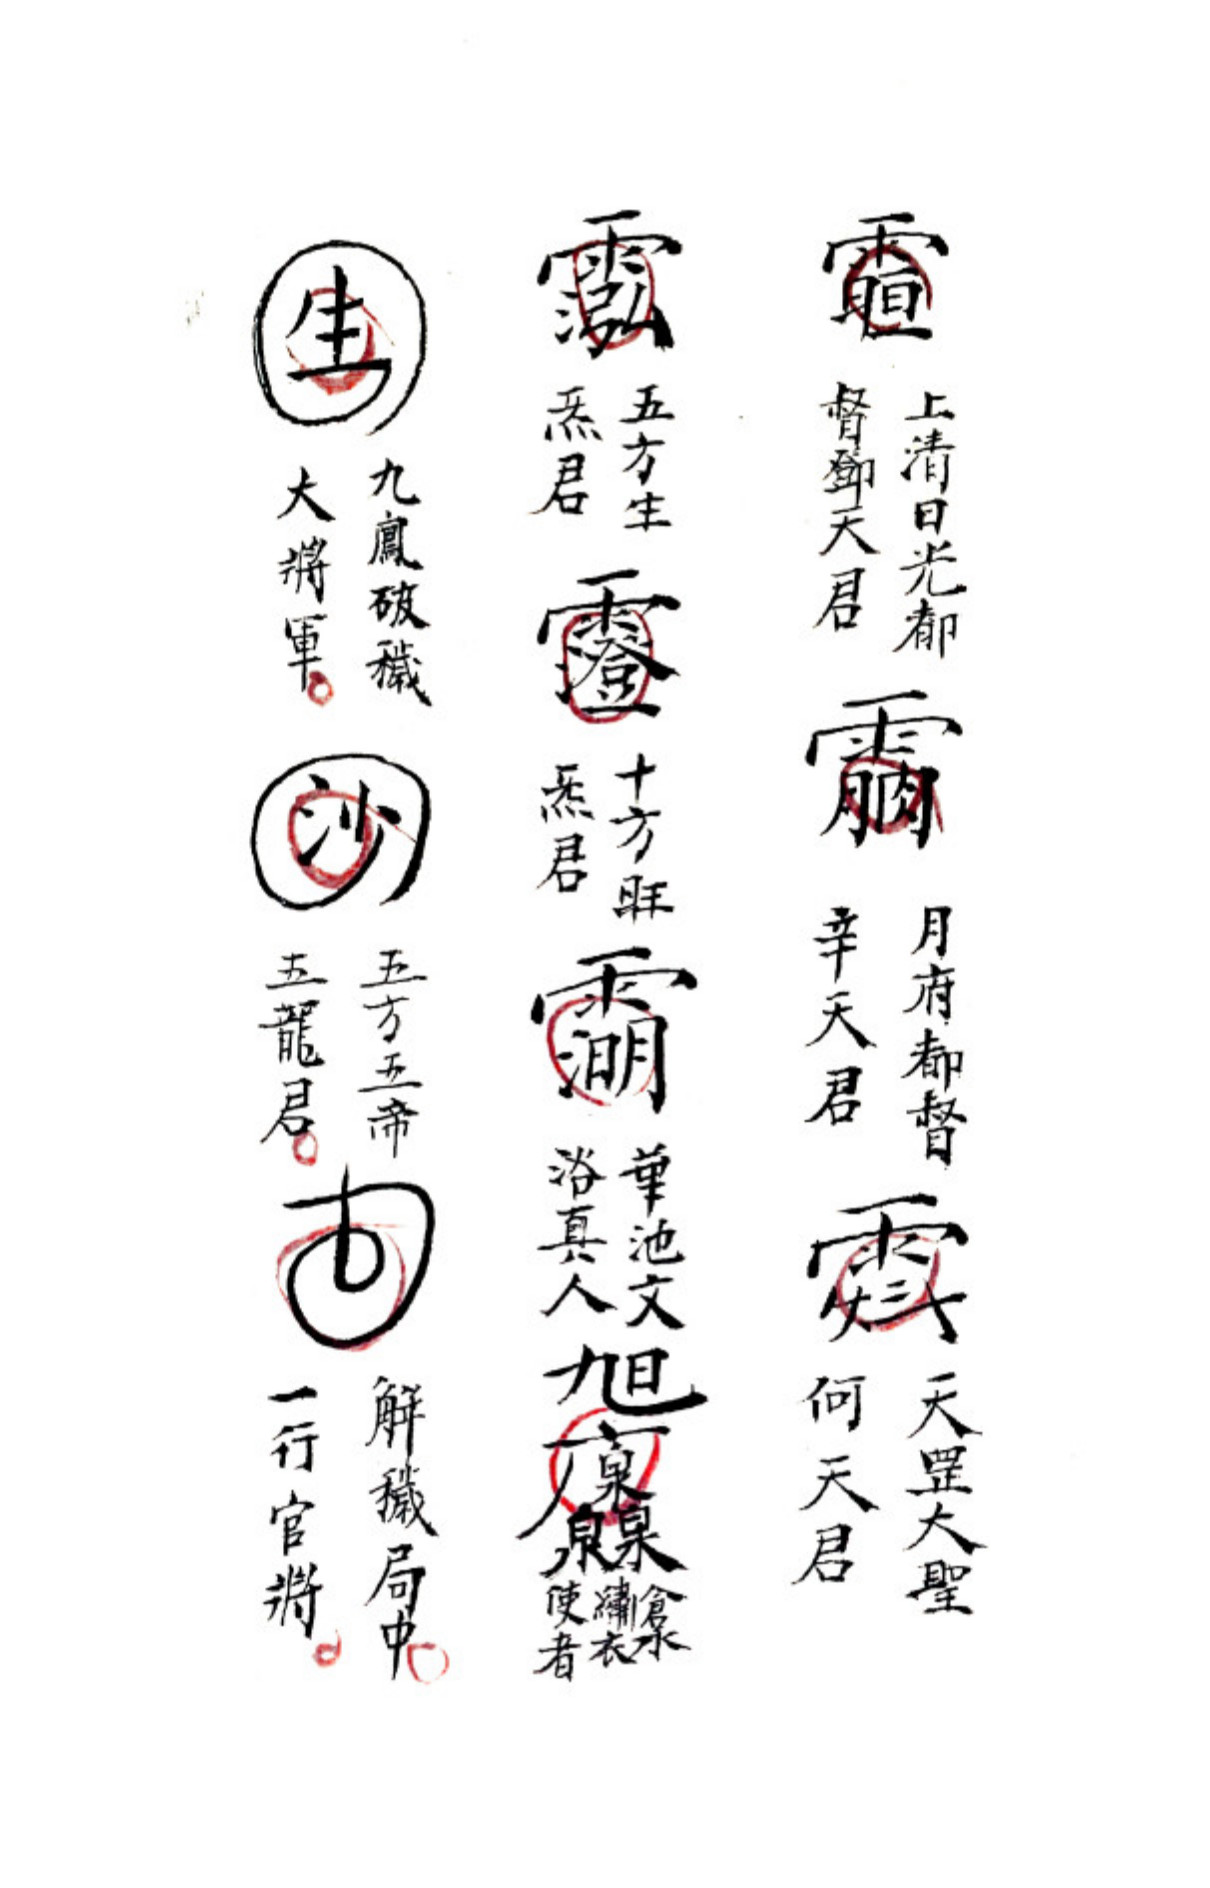 上清日光都
督鄧天君
月府都督
辛天君
天罡大聖
何天君
五方生
炁君
十方旺
炁君
華池文
浴真人
倉水
繡衣
使者
生
九鳳破穢
大將軍
沙
五方五帝
五龍君
解穢局中
一行官將